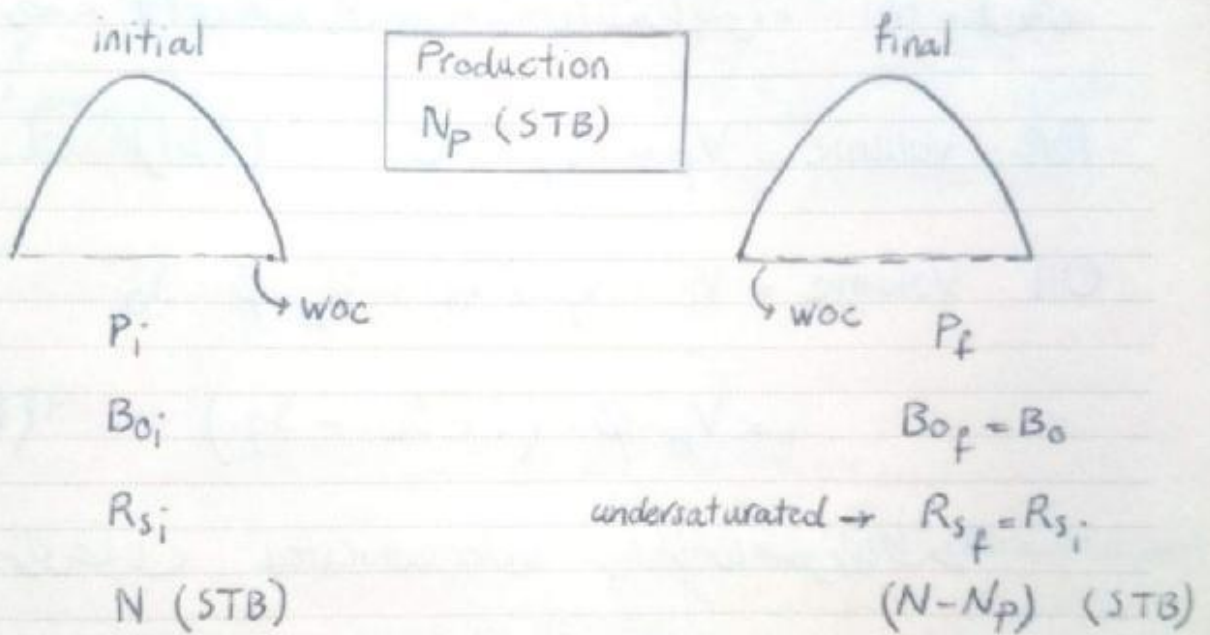 initial
Production
N_P (STB)
final
WOC
WOC
P_i
P_f
B_{o_i}
B_{o_f} = B_o
R_{s_i}
undersaturated → R_{s_f} = R_{s_i}
N (STB)
(N-N_P) (STB)